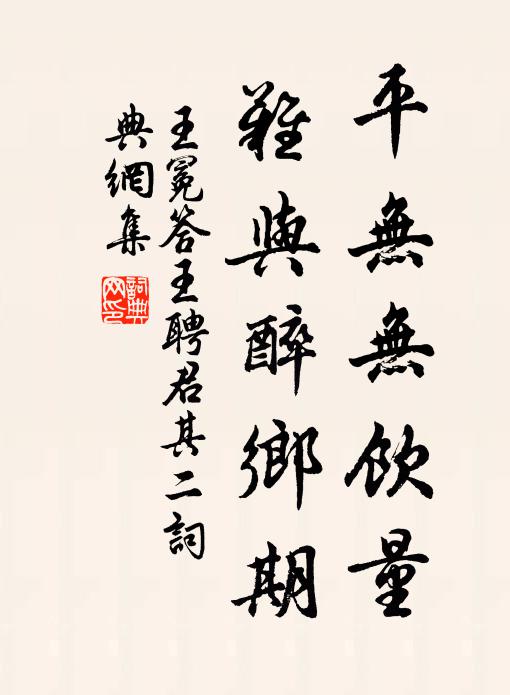 平無無飲量
難與醉鄉期
王冕答王聘君其二詞
典網集
詞典
网印